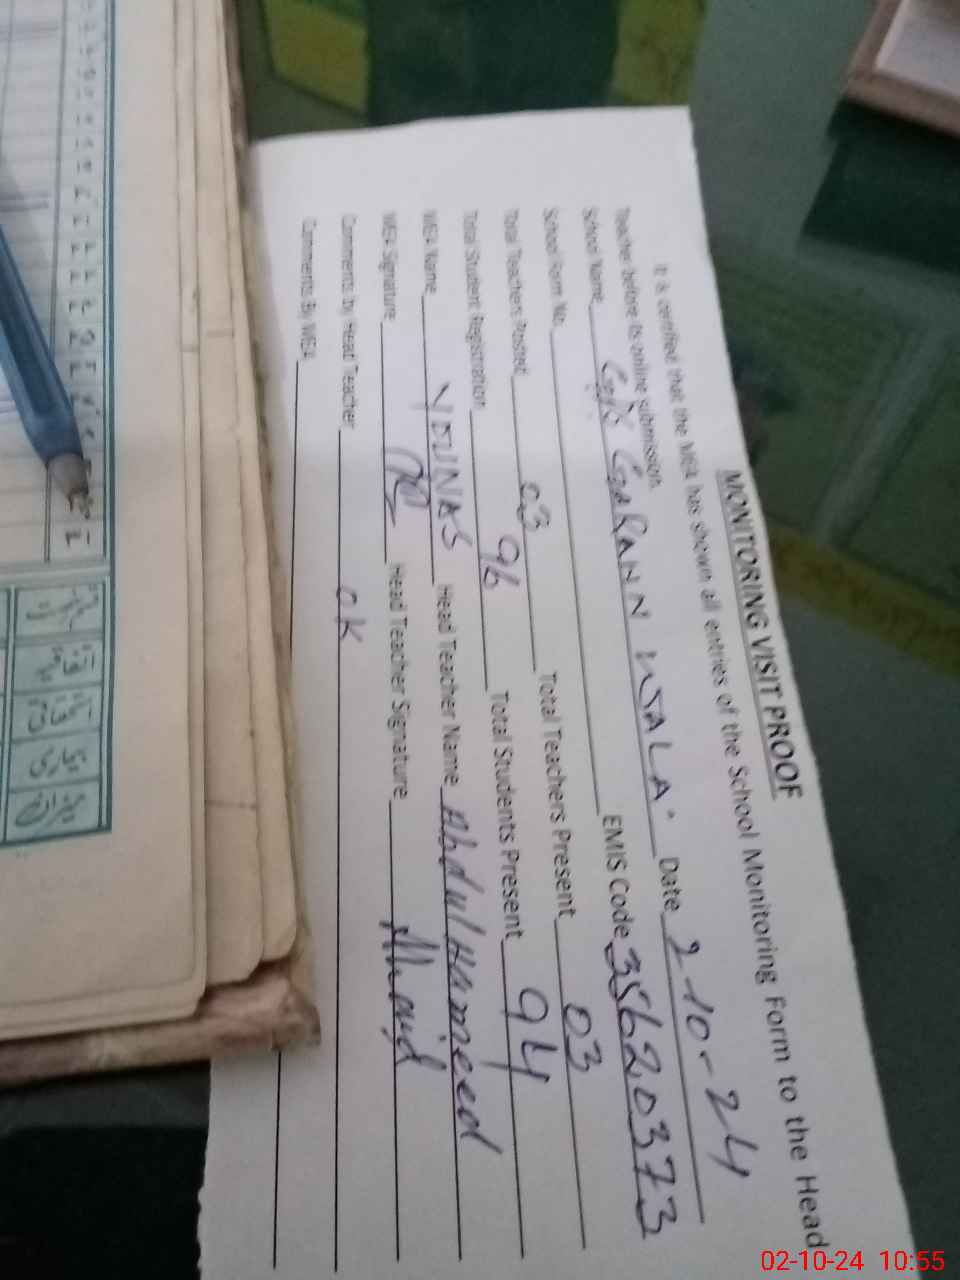 MONITORING VISIT PROOF
It is certified that the MEA has shown all entries of the School Monitoring Form to the Head
Teacher before its online submission.
School Name GPS GARANN WALA. Date 2-10-24
School Form No. EMIS Code 35620373
Total Teachers Posted 03 Total Teachers Present 03
Total Student Registration 96 Total Students Present 94
MEA Name YOUNAS Head Teacher Name Abdul Hameed
MEA Signature Head Teacher Signature
Comments by Head Teacher OK
Comments By MEA
02-10-24 10:55